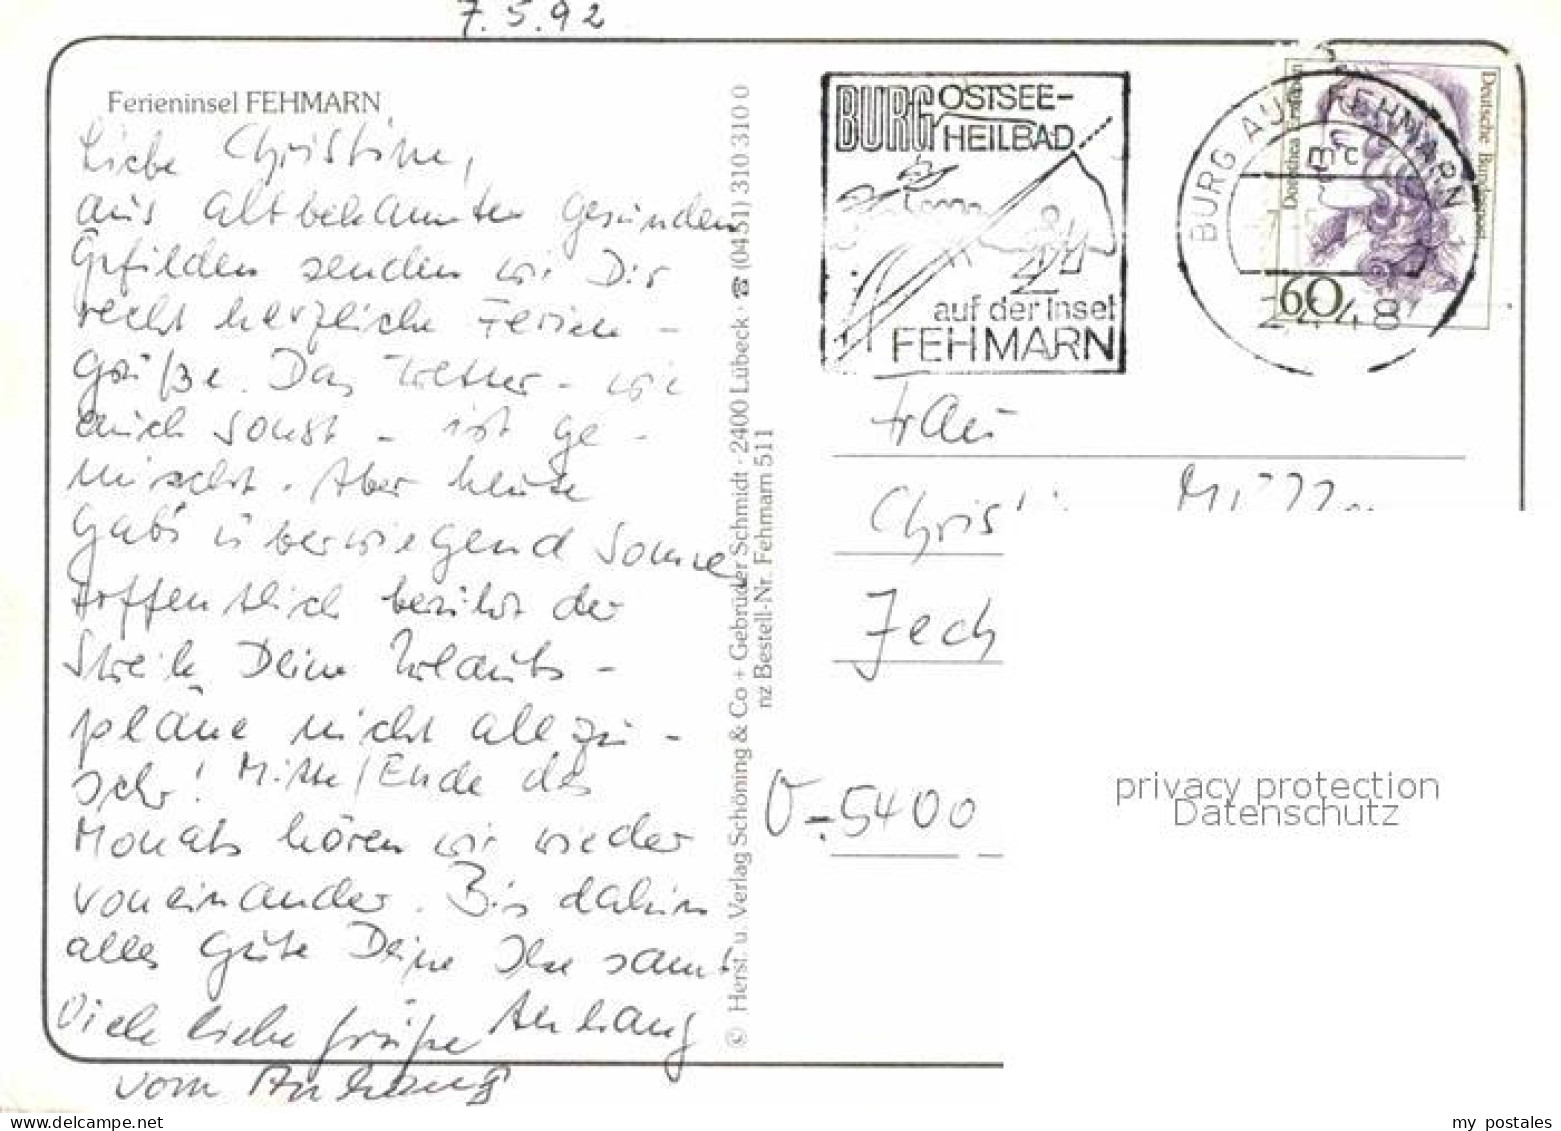 7.5.92
Ferieninsel FEHMARN
Liebe Christine,
aus altbekannten gesunden
Gefilden senden wir Dir
recht herzliche Ferien-
grüße. Das Wetter - wie
auch sonst - ist ge-
mischt. Aber heute
gab's überwiegend Sonne.
Hoffentlich berührt der
Streik Deine Urlaubs-
pläne nicht allzu-
sehr! Mitte/Ende des
Monats hören wir wieder
voneinander. Bis dahin
alles Gute Deine Ilse samt
Anhang
Viele liebe Grüße
vom Anhang
© Herst. u. Verlag Schöning & Co + Gebrüder Schmidt · 2400 Lübeck · ☎ (0451) 310 310 0
nz Bestell-Nr. Fehmarn 511
BURG OSTSEE-
HEILBAD
auf der Insel
FEHMARN
BURG AUF FEHMARN 1
mc
2448
Deutsche Bundespost
Dorothea Erxleben
60
Frau
Christi
Jech
O-5400
privacy protection
Datenschutz
my postales